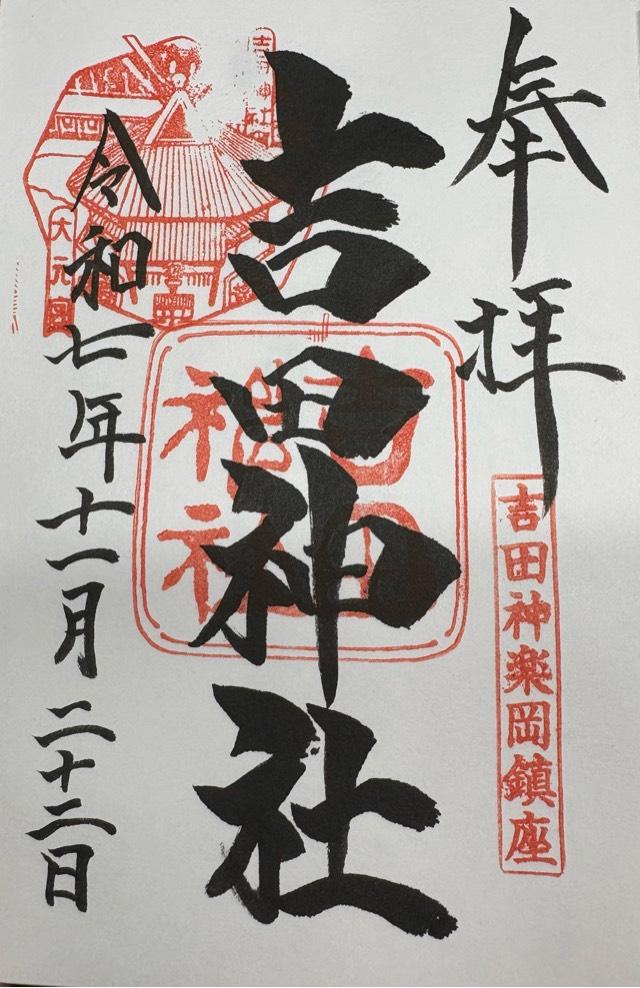 奉拝
吉田神楽岡鎮座
吉田神社
吉田神社
吉田神社
大元宮
令和七年十一月二十二日